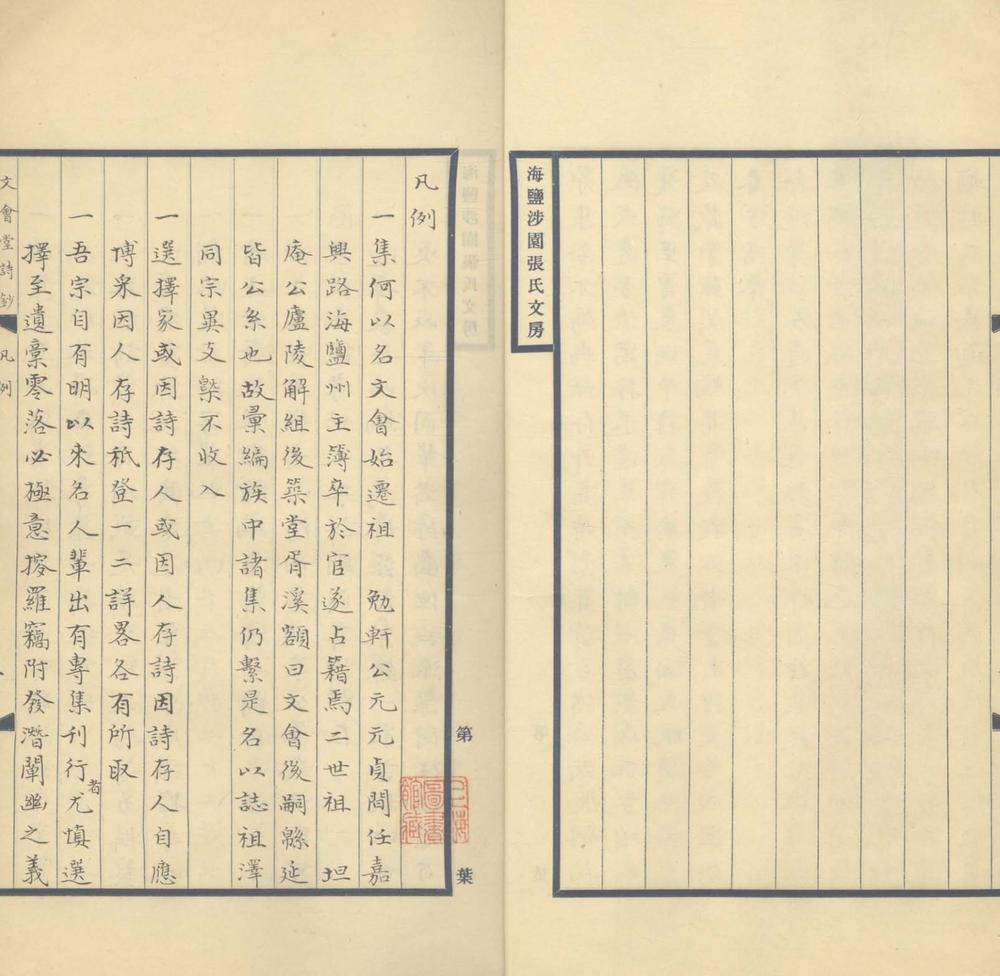 海鹽涉園張氏文房
第 葉
凡例
一集何以名文會始遷祖 勉軒公元元貞間任嘉
興路海鹽州主簿卒於官遂占籍焉二世祖 坦
庵公廬陵解組後築堂胥溪額曰文會後嗣緜延
皆公系也故彙編族中諸集仍繫是名以誌祖澤
同宗異支槩不收入
一選擇家或因詩存人或因人存詩因詩存人自應
博采因人存詩祇登一二詳畧各有所取
一吾宗自有明以來名人輩出有專集刊行者尤慎選
擇至遺稾零落必極意搜羅竊附發潛闡幽之義
文會堂詩鈔
凡例